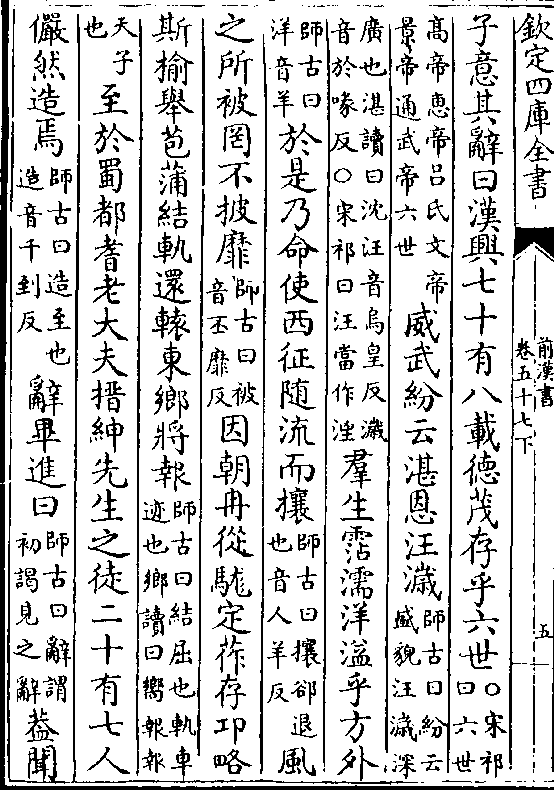 欽定四庫全書
前漢書
卷五十七下
五
子意其辭曰漢興七十有八載德茂存乎六世○宋祁曰六世
高帝惠帝呂氏文帝景帝通武帝六世威武紛云湛恩汪濊師古曰紛云盛貌汪濊深
廣也湛讀曰沈汪音烏皇反濊音於喙反○宋祁曰汪當作淫羣生霑濡洋溢乎方外
師古曰洋音羊於是乃命使西征隨流而攘師古曰攘卻退也音人羊反風
之所被罔不披靡師古曰被音丕靡反因朝冉從駹定莋存卭略
斯榆舉苞蒲結軌還轅東鄉將報師古曰結屈也軌車迹也鄉讀曰嚮報報
天子也至於蜀都耆老大夫搢紳先生之徒二十有七人
儼然造焉師古曰造至也造音千到反辭畢進曰師古曰辭謂初謁見之辭葢聞